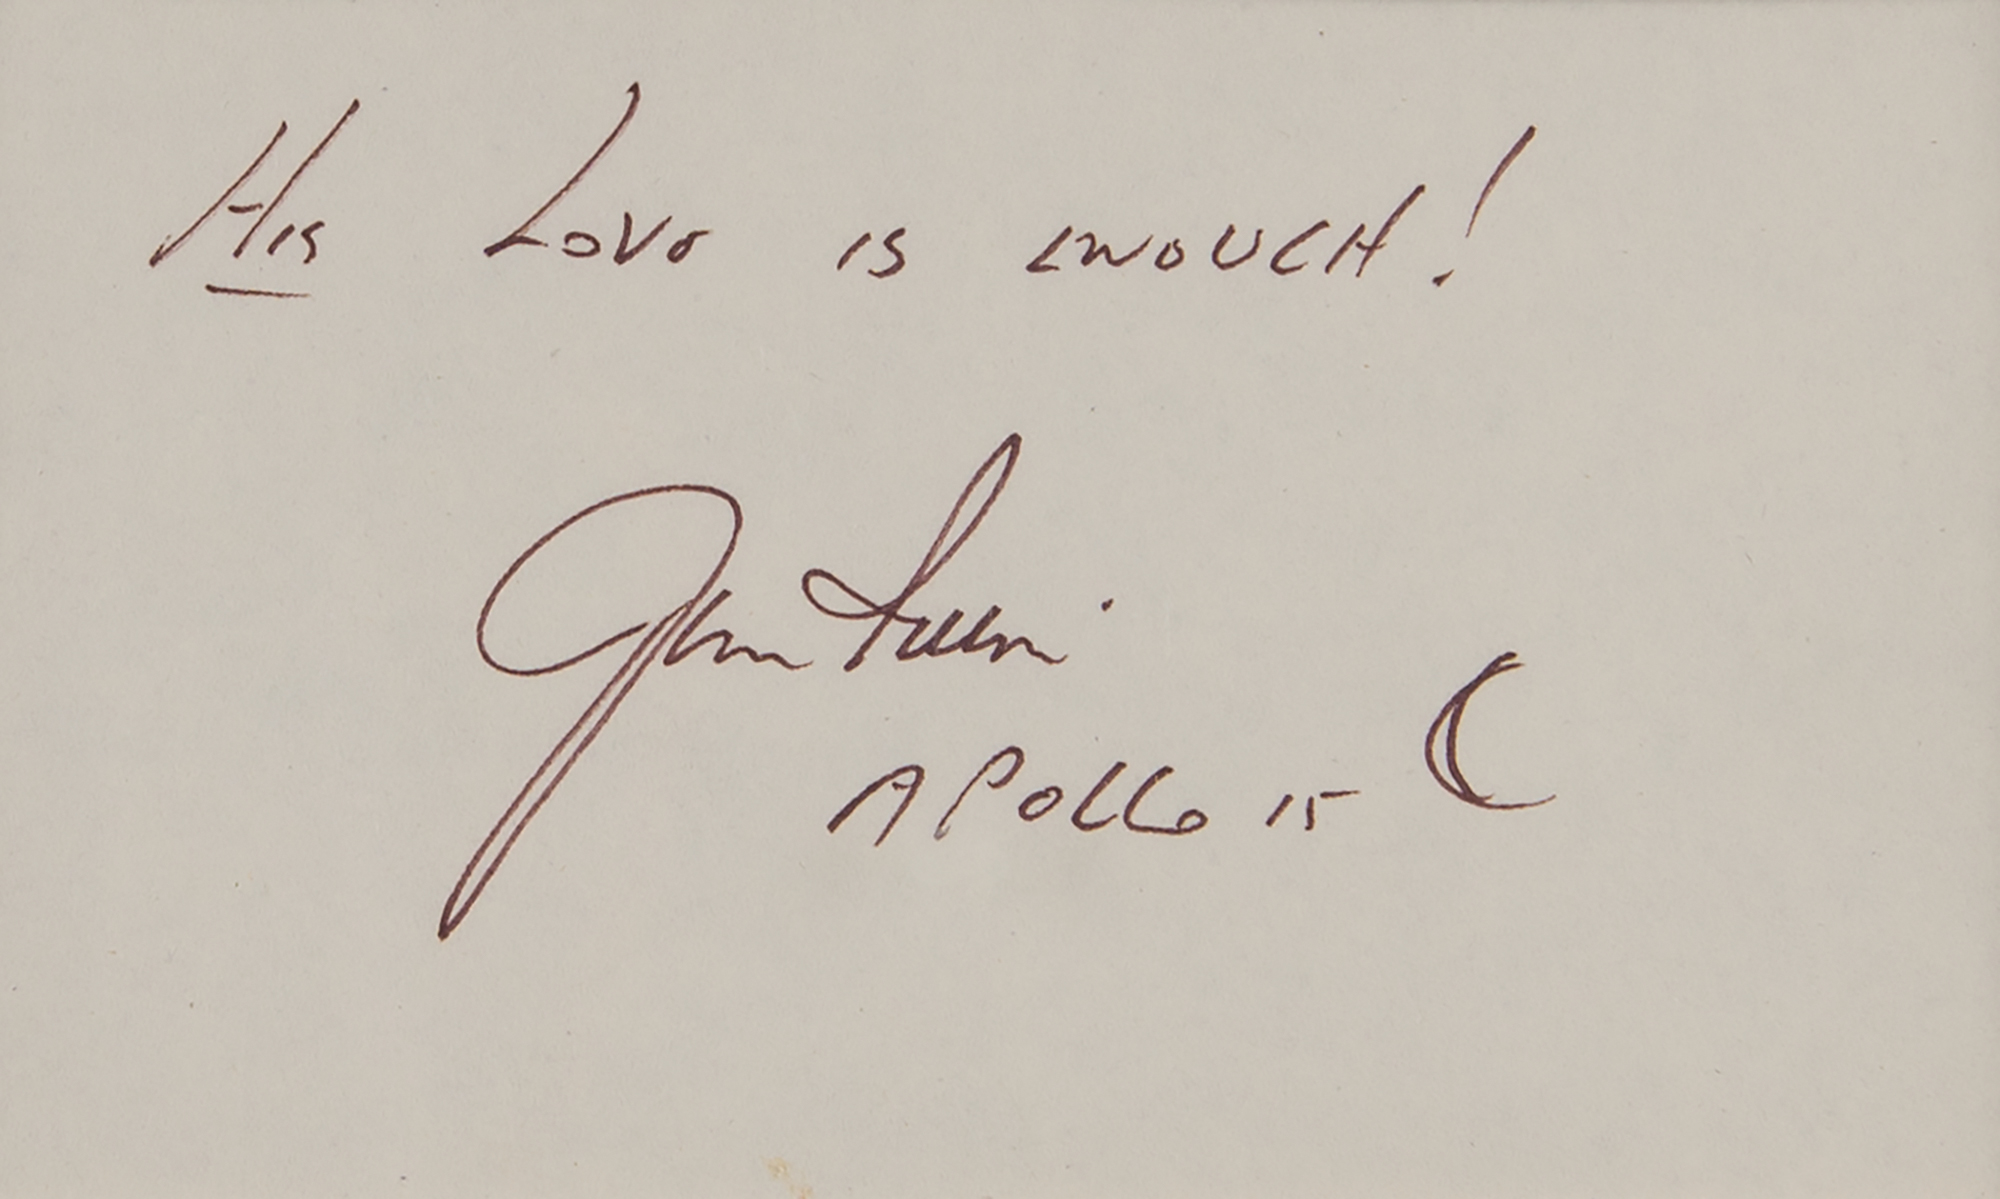 His Love is ENOUGH!
Jim Irwin
APOLLO 15